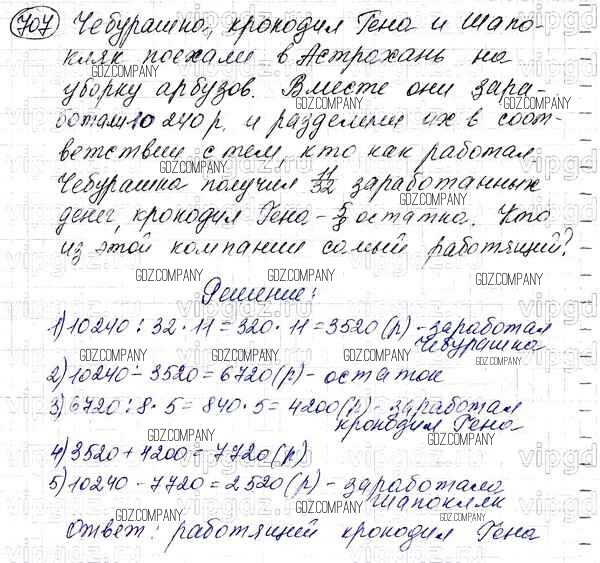 707 Чебурашка, крокодил Гена и Шапо-
кляк поехали в Астрахань на
уборку арбузов. Вместе они зара-
ботали 10 240 р. и разделили их в соот-
ветствии с тем, кто как работал.
Чебурашка получил 11/32 заработанных
денег, крокодил Гена – 5/8 остатка. Кто
из этой компании самый работящий?
Решение:
1) 10240 : 32 · 11 = 320 · 11 = 3520 (р) - заработал
Чебурашка
2) 10240 - 3520 = 6720 (р) - остаток
3) 6720 : 8 · 5 = 840 · 5 = 4200 (р) - заработал
крокодил Гена
4) 3520 + 4200 = 7720 (р)
5) 10240 - 7720 = 2520 (р) - заработала
Шапокляк
Ответ: работящей крокодил Гена
GDZ.COMPANY
vipgdz